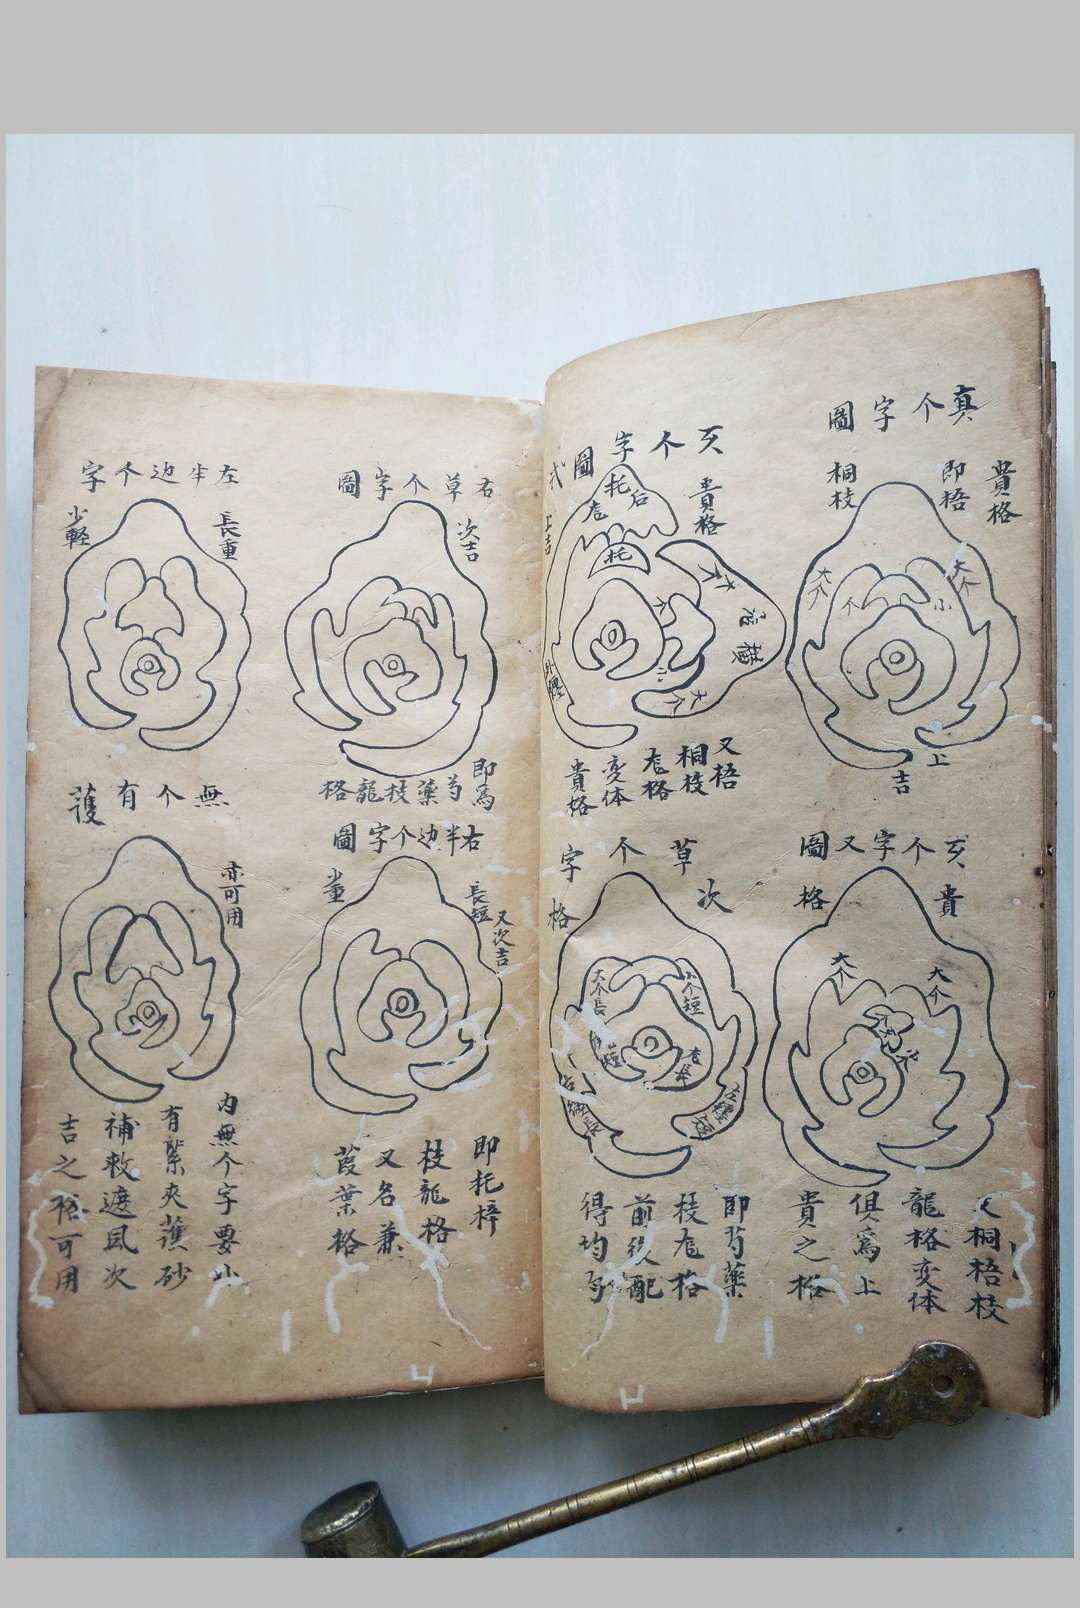 真个字圖
貴格
即梧
桐枝
大个
大个
个
小
上
吉
亥个字圖
式
貴格
上吉
后
托
托
大个
小
大个
又梧
桐枝
格
变体
貴格
亥个字又圖
貴
格
大个
大个
桐梧枝
龍格变体
俱為上
貴之格
草个字
格
次
大个長
小个短
即芍藥
枝格
前後配
得均匀
右草个字圖
次吉
即為
芍藥枝龍格
右半边个字圖
長短
又次吉
即托梓
枝龍格
又名兼
葭葉格
左半边个字
長重
少輕
無个有護
亦可用
内無个字要外
有緊夾護砂
補救遮風次
吉之格可用